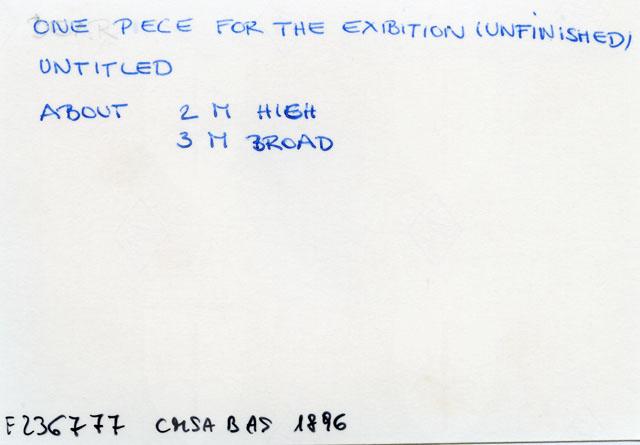 ONE PECE FOR THE EXIBITION (UNFINISHED)
UNTITLED
ABOUT 2 M HIGH
3 M BROAD
F236777 CMSA BAS 1896